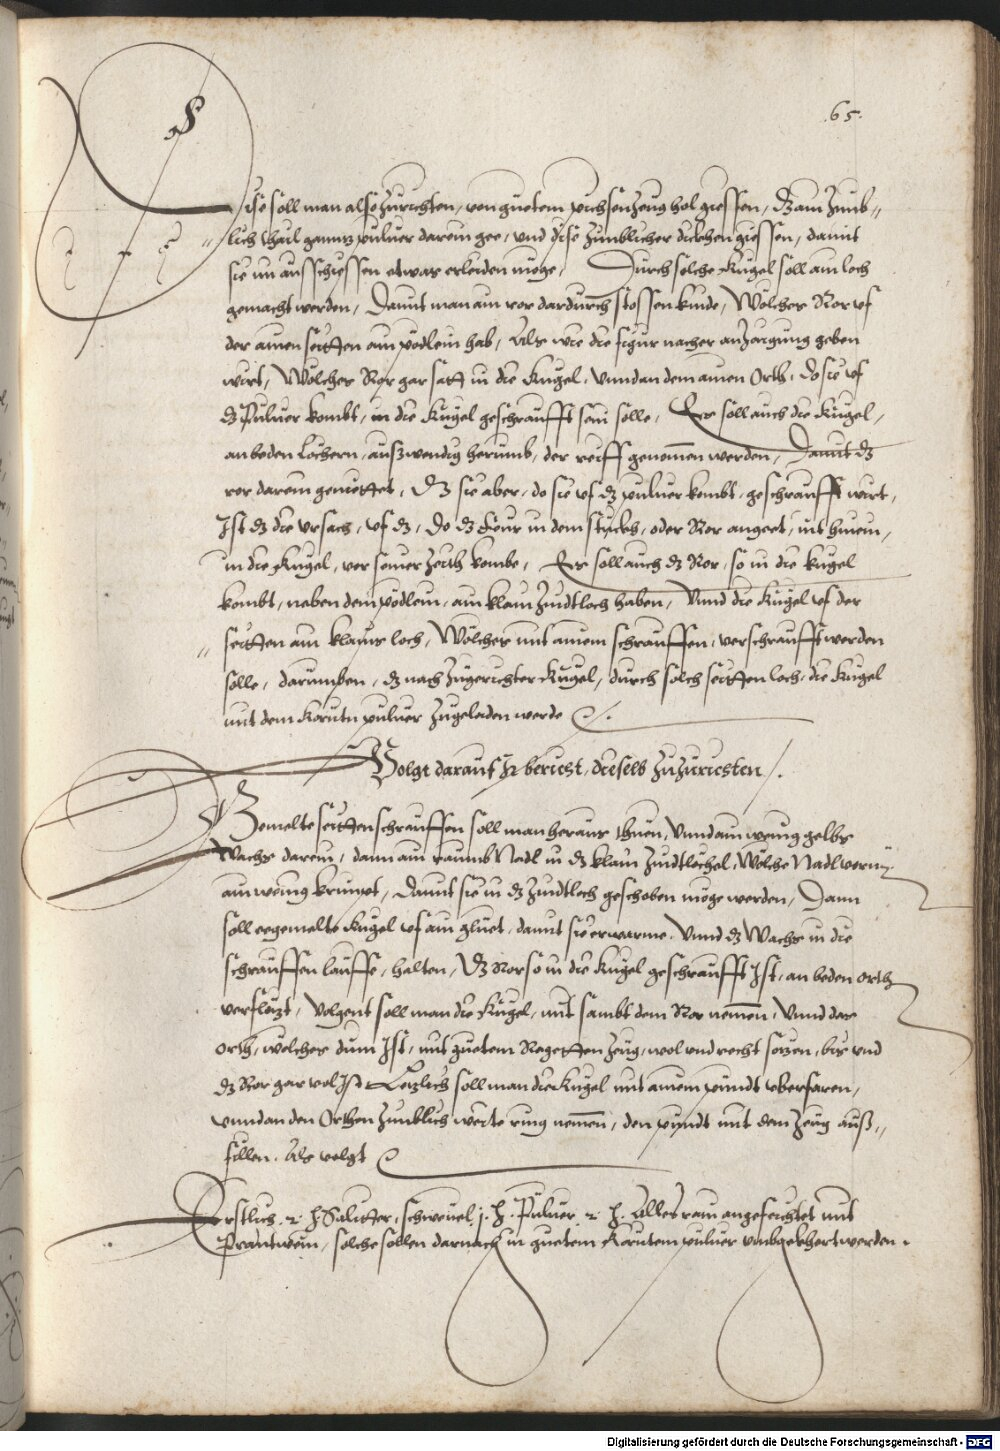 65.
Dise soll man also Zurichten, von guetem puchsenzeug hol giessen, Dz ain Zimb=
lich thail gannz puluer darein gee, vnd dise Zimblicher dickhen giessen, damit
sie im ausschiessen etwas erleiden möge, Durch solche Kugel soll ain loch
gemacht werden, Damit man ain ror dardurch stossen kinde, Wölches Ror vf
der ainen seitten ain pödlein hab, Als wie die figur nacher anzaigung geben
wirt, Wölches Ror gar satt in die Kugel, Vnnd an dem ainen Orth, do sie vf
dz Puluer kombt, in die Kugel geschraufft sein solle, Es soll auch die Kugel,
an beden Löchern, auszwendig herumb, der reiff genomen werden, Damit dz
ror darein geniettet, Dz sie aber, do sie vf dz puluer kombt, geschraufft wirt,
Ist dz die vrsach, vf dz, do dz Feur in dem stuckh, oder Ror angeet, nit hinein,
in die Kugel, vor seiner Zeith kombe, Es soll auch dz Ror, so in die kugel
kombt, neben dem pödlein, ain klain Zindtloch haben, Vnnd die Kugel vf der
seitten ain klains loch, Wölches mit ainem schrauffen, verschraufft werden
solle, darumben, dz nach Zugerichter Kugel, durch solch seitten loch, die Kugel
mit dem Kornten puluer Zugeladen werde
Volgt darauf bericht, dieselb Zuzurichten
Gemelte seitten schrauffen soll man heraus thuen, Vnnd ain wenig gelbs
Wachs darein, dann ain raumb Nadl in dz klain Zindtlöchel, Wölche Nadl vorn
ain wenig krumpt, Damit sie in dz Zindtloch geschoben möge werden, Dann
soll eegemelte Kugel vf ain gluet, damit sie erwarme, Vnnd dz Wachs in die
schrauffen lauffe, halten, Dz Ror so in die Kugel geschraufft Ist, an beden orth
verfletzt, Volgent soll man die Kugel, mit sambt dem Ror nemen, Vnnd das
orth, wölches dinn Ist, mit guetem Ragetten Zeug, wol vnd recht setzen, bis vnd
dz Ror gar vol Ist Letzlich soll man die Kugel mit ainem pundt vberfaren,
vnnd an den Orthen Zimblich weite ring nemen, den pundt mit dem Zeug ausz=
fillen. Als volgt
Erstlich 2 Saliter, schwevel j. Puluer 2 Alles rain angefeichtet mit
Prantwein, solche sollen darnach in guetem Korntem puluer vmbgekhert werden.
Digitalisierung gefördert durch die Deutsche Forschungsgemeinschaft - DFG